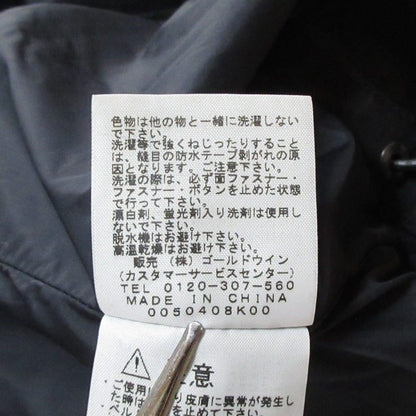 色物は他の物と一緒に洗濯しない
で下さい。
洗濯等で強くねじったりすること
は、縫目の防水テープ剥がれの原
因となります。ご注意下さい。
洗濯の際は、必ず面ファスナー・
ファスナー・ボタンを止めた状態
で行って下さい。
漂白剤、蛍光剤入り洗剤は使用し
ないで下さい。
脱水機はお避け下さい。
高温乾燥はお避け下さい。
販売 (株) ゴールドウイン
(カスタマーサービスセンター)
TEL 0120-307-560
MADE IN CHINA
0050408K00
意
ご使用により皮膚に異常が発生し